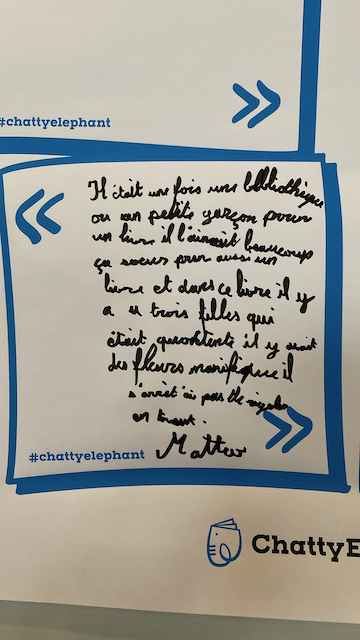 #chattyelephant
Il était une fois une bibliothèque
ou un petite garçon pour
un livre il l'aimait beaucoup
ça soeur prur aussi un
livre et dans ce livre il y
a u trois filles qui
était il y avait
des fleurs manifique il
s'arrêt ai pas de
en
Matteo
#chattyelephant
ChattyE